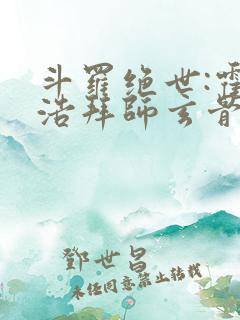 斗羅绝世:霍
浩拜師玄骨
鄧世昌
未任同意禁止转载